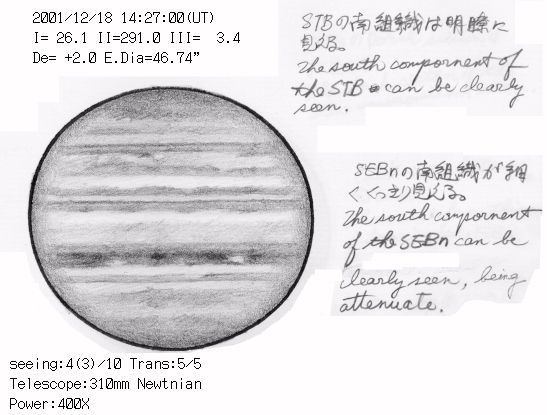 2001/12/18 14:27:00(UT)
I= 26.1 II=291.0 III=  3.4
De= +2.0 E.Dia=46.74”
STBの南組織は明瞭に
見える。
The south compornent of
the STB can be clearly
seen.
SEBnの南組織が細
くくっきり見える。
The south compornent
of the SEBn can be
clearly seen, being
attenuate.
seeing:4(3)/10 Trans:5/5
Telescope:310mm Newtnian
Power:400X